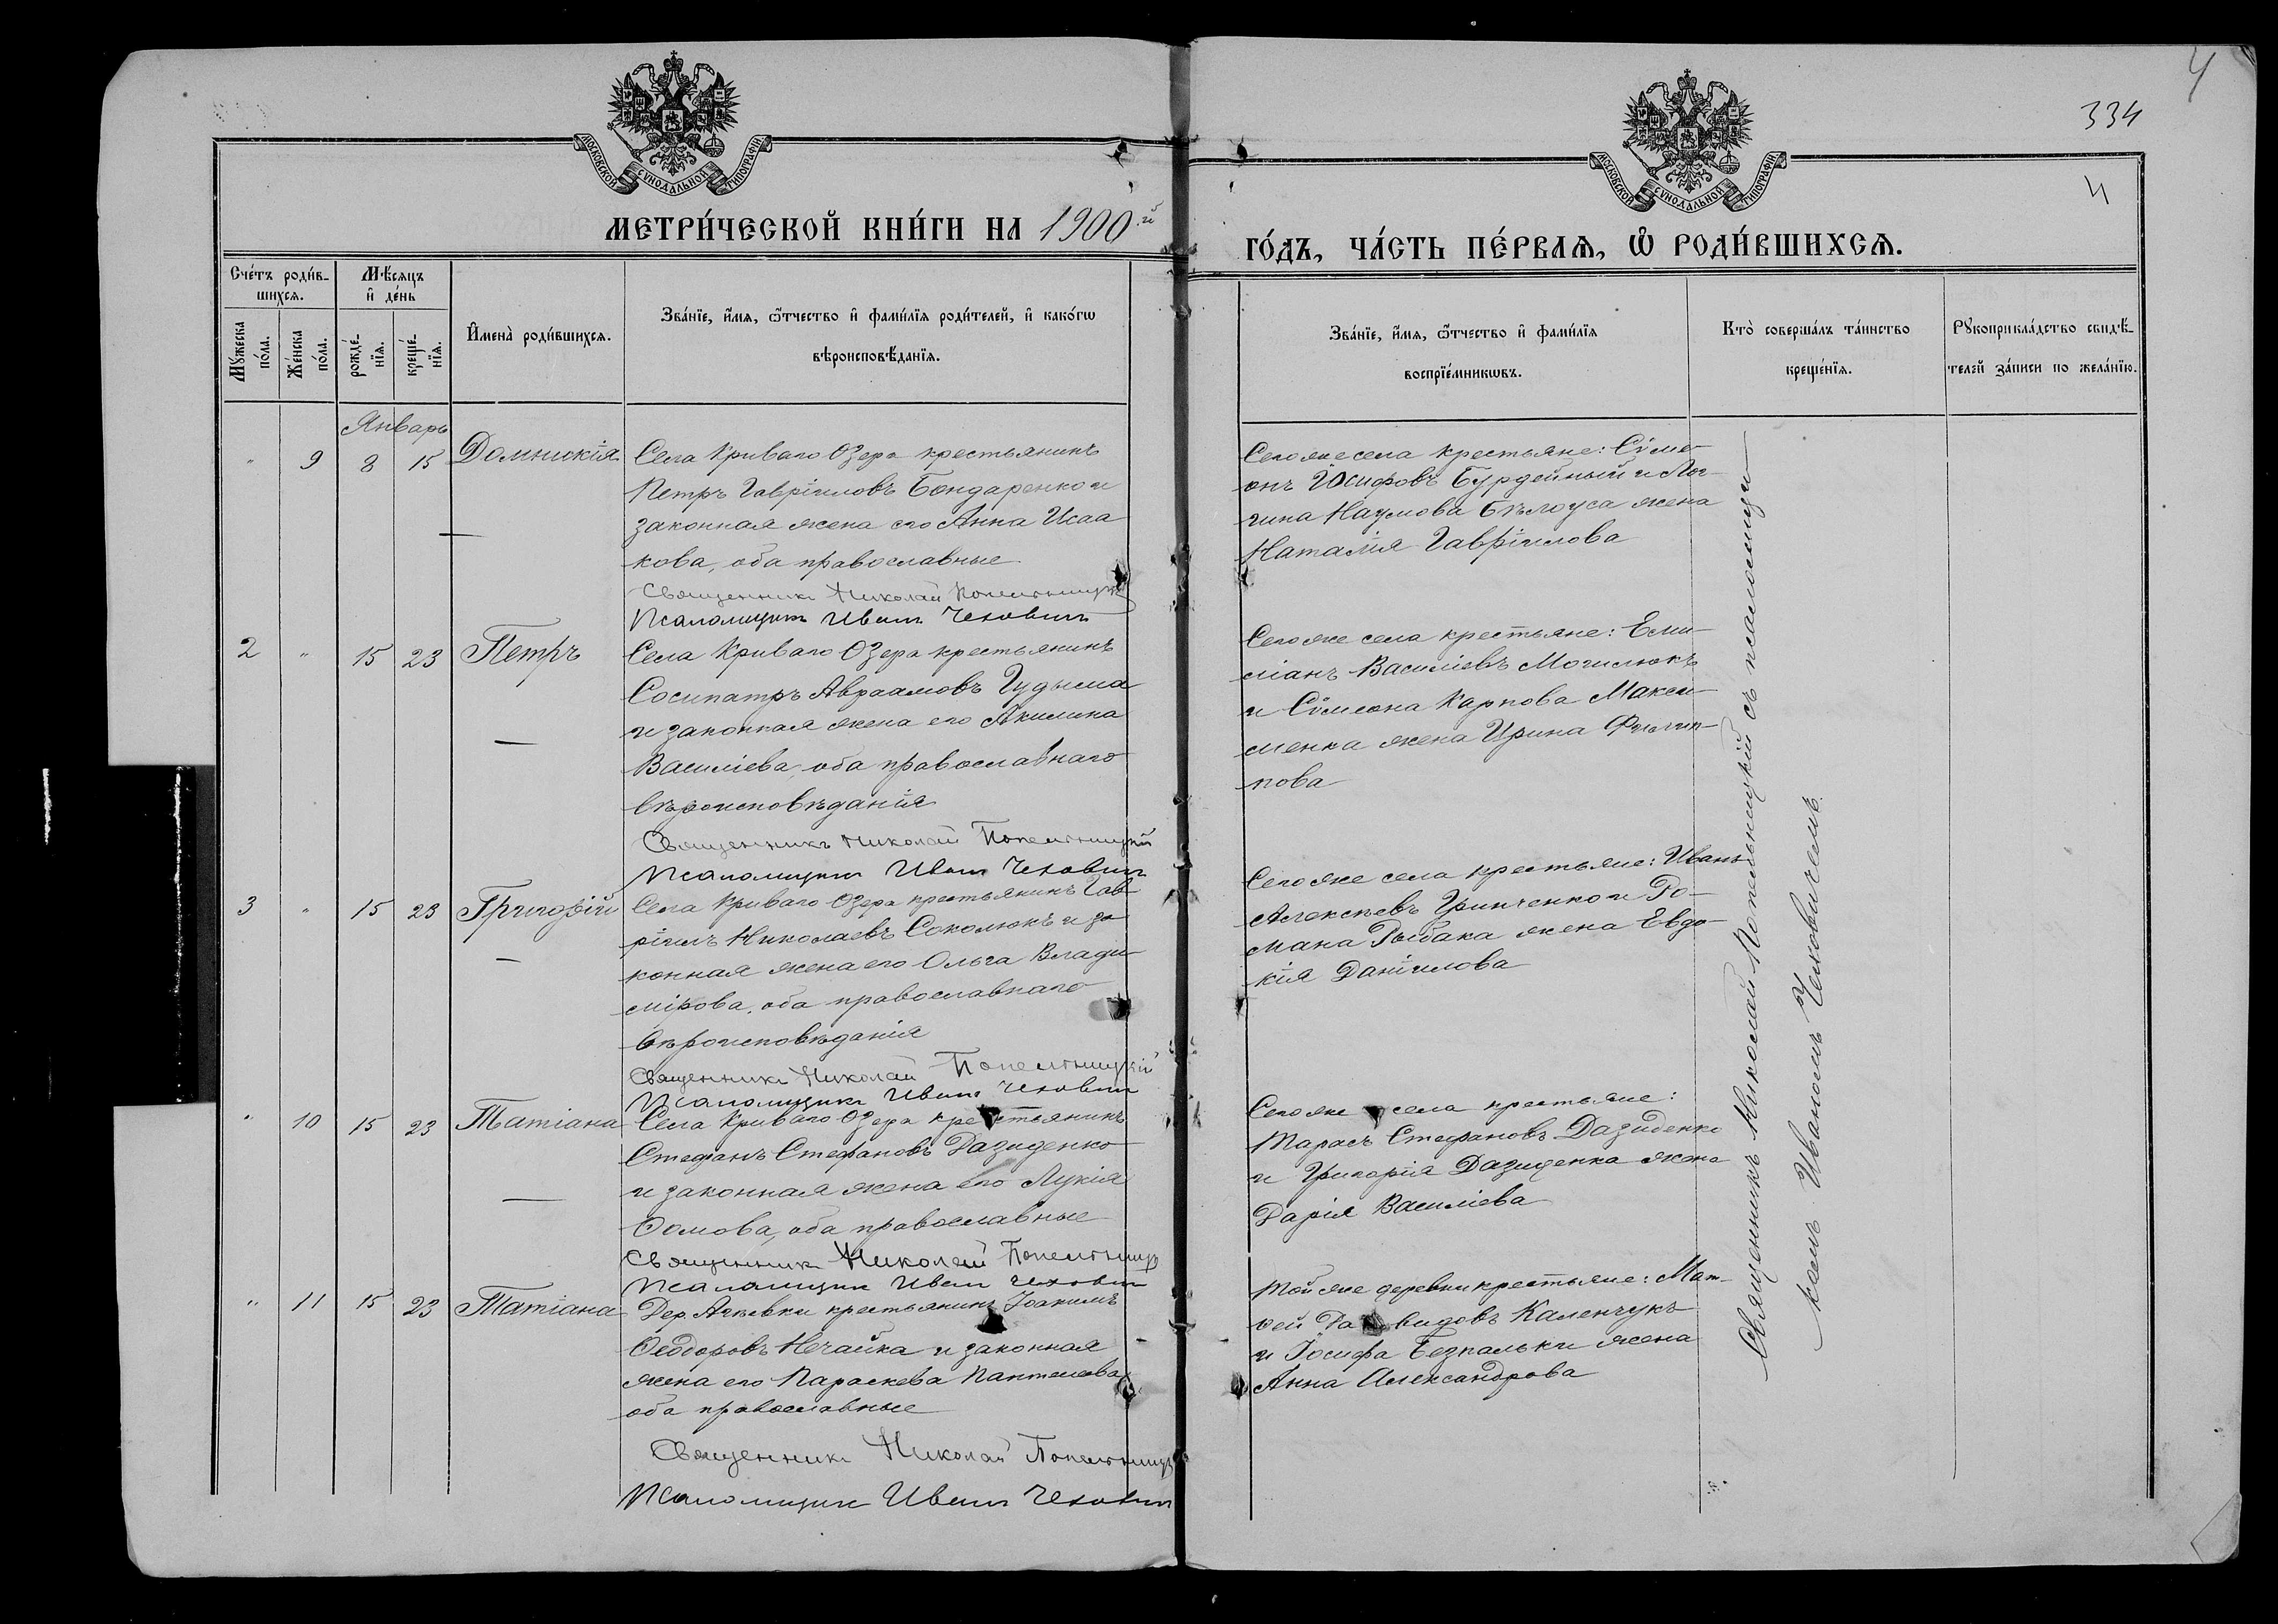 4
334
4
МОСКОВСКОЙ СѴНОДАЛЬНОЙ ТИПОГРАФІИ
МОСКОВСКОЙ СѴНОДАЛЬНОЙ ТИПОГРАФІИ
МЕТРИ́ЧЕСКОЙ КНИ́ГИ НА 1900й
ГО́ДЪ, ЧА́СТЬ ПЕ́РВАѦ, Ѽ РОДИ́ВШИХСѦ.
Сче́тъ роди́в-
шихсѧ.
Мѣ́сѧцъ
и҆ де́нь
Мꙋ́жеска
по́ла.
Же́нска
по́ла.
рожде́-
нїѧ.
креще́-
нїѧ.
И҆мена̀ роди́вшихсѧ.
Зва́нїе, и҆́мѧ, ѻ҆́тчество и҆ фами́лїѧ роди́телей, и҆ како́гѡ
вѣроисповѣ́данїѧ.
Зва́нїе, и҆́мѧ, ѻ҆́тчество и҆ фами́лїѧ
воспрїе́мникѡвъ.
Кто̀ соверша́лъ та́инство
креще́нїѧ.
Рꙋкоприкла́дство свидѣ́-
телей за́писи по жела́нїю.
Январь
" 9 8 15 Домникія
Села Криваго Озера крестьянинъ
Петръ Гавріиловъ Бондаренко и
законная жена его Анна Исаа
кова, оба православные
Священникъ Николай Попельницкій
Псаломщикъ Иванъ Чеховичъ
Того же села крестьяне: Сѵме-
онъ Іосифовъ Бурдейный и Лог-
гина Наумова Бѣлоуса жена
Наталія Гавріилова
2 " 15 23 Петръ
Села Криваго Озера крестьянинъ
Сосипатръ Авраамовъ Гудыма
и законная жена его Акилина
Василіева, оба православнаго
вѣроисповѣданія
Священникъ Николай Попельницкій
Псаломщикъ Иванъ Чеховичъ
Того же села крестьяне: Еми-
ліанъ Василіевъ Могилюкъ
и Сѵмеона Карпова Макси-
менка жена Ирина Филип-
пова
3 " 15 23 Григорій
Села Криваго Озера крестьянинъ Гав-
ріилъ Николаевъ Соколюкъ и за
конная жена его Ольга Влади-
мірова, оба православнаго
вѣроисповѣданія
Священникъ Николай Попельницкій
Псаломщикъ Иванъ Чеховичъ
Того же села крестьяне: Иванъ
Алексѣевъ Гринченко и Ро-
мана Рыбака жена Евдо-
кія Даніилова
" 10 15 23 Татіана
Села Криваго Озера крестьянинъ
Стефанъ Стефановъ Дазиденко
и законная жена его Лукія
Ѳомова, оба православные
Священникъ Николай Попельницкій
Псаломщикъ Иванъ Чеховичъ
Того же села крестьяне:
Тарасъ Стефановъ Дазиденко
и Григорія Дазиденка жена
Дарія Василіева
" 11 15 23 Татіана
Дер. крестьянинъ Іоакимъ
Ѳеодоровъ Нечайка и законная
жена его Параскева
оба православные
Священникъ Николай Попельницкій
Псаломщикъ Иванъ Чеховичъ
Той же деревни крестьяне: Мат-
ѳей Давидовъ Каленчукъ
и Іосифа Безпальки жена
Анна Александрова
Священникъ Николай Попельницкій съ псаломщи-
комъ Иваномъ Чеховичемъ.